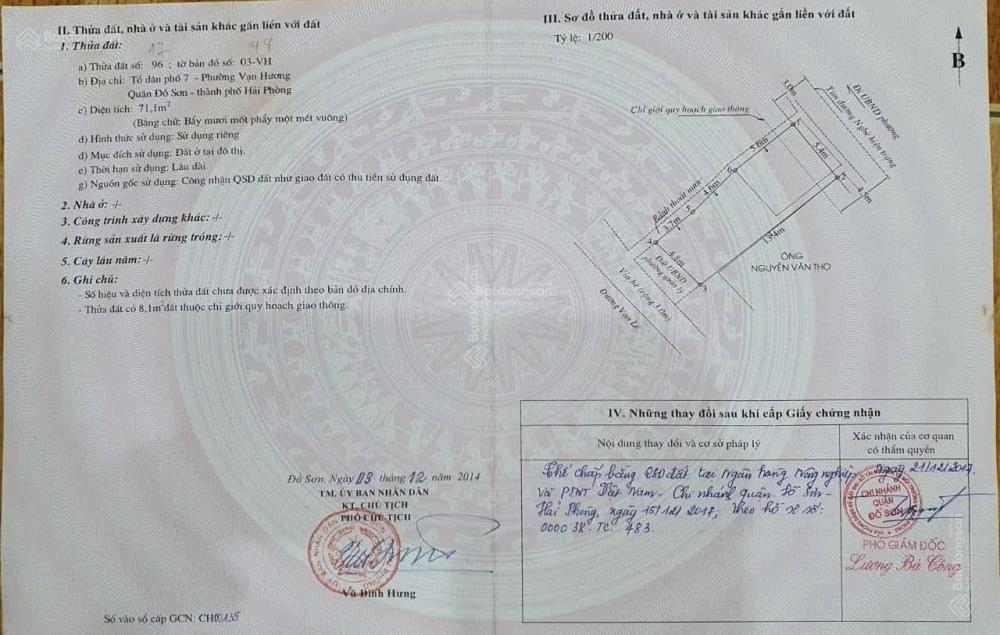 II. Thửa đất, nhà ở và tài sản khác gắn liền với đất
1. Thửa đất: 17 44
a) Thửa đất số: 96 ; tờ bản đồ số: 03-VH
b) Địa chỉ: Tổ dân phố 7 - Phường Vạn Hương
Quận Đồ Sơn - thành phố Hải Phòng
c) Diện tích: 71,1m²
(Bằng chữ: Bẩy mươi mốt phẩy một mét vuông)
d) Hình thức sử dụng: Sử dụng riêng
đ) Mục đích sử dụng: Đất ở tại đô thị.
e) Thời hạn sử dụng: Lâu dài
g) Nguồn gốc sử dụng: Công nhận QSD đất như giao đất có thu tiền sử dụng đất.
2. Nhà ở: -/-
3. Công trình xây dựng khác: -/-
4. Rừng sản xuất là rừng trồng: -/-
5. Cây lâu năm: -/-
6. Ghi chú:
- Số hiệu và diện tích thửa đất chưa được xác định theo bản đồ địa chính.
- Thửa đất có 8,1m² đất thuộc chỉ giới quy hoạch giao thông.
Đồ Sơn, Ngày 03 tháng 12 năm 2014
TM. ỦY BAN NHÂN DÂN
KT. CHỦ TỊCH
PHÓ CHỦ TỊCH
Vũ Đình Hưng
Số vào sổ cấp GCN: CH00135
III. Sơ đồ thửa đất, nhà ở và tài sản khác gắn liền với đất
Tỷ lệ: 1/200
B
Chỉ giới quy hoạch giao thông
3.0m
Đi UBND phường
Tim đường Nghè hiện trạng
1
5.6m
5.4m
2
4.5m
6
4.6m
Rãnh thoát nước
5
3.7m
4
4.8m
3
13.4m
Đất UBND
phường quản lý
Vỉa hè (rộng 3.0m)
Đường Vạn Lê
ÔNG
NGUYỄN VĂN THỌ
IV. Những thay đổi sau khi cấp Giấy chứng nhận
Nội dung thay đổi và cơ sở pháp lý
Xác nhận của cơ quan
có thẩm quyền
Thế chấp bằng QSD đất tại Ngân hàng Nông nghiệp
và PTNT Việt Nam - Chi nhánh quận Đồ Sơn -
Hải Phòng, ngày 15/12/2017; theo hồ sơ số:
000038. TC. 483.
Ngày 21/12/2017
CHI NHÁNH
QUẬN
ĐỒ SƠN
PHÓ GIÁM ĐỐC
Lương Bá Công
Batdongsan